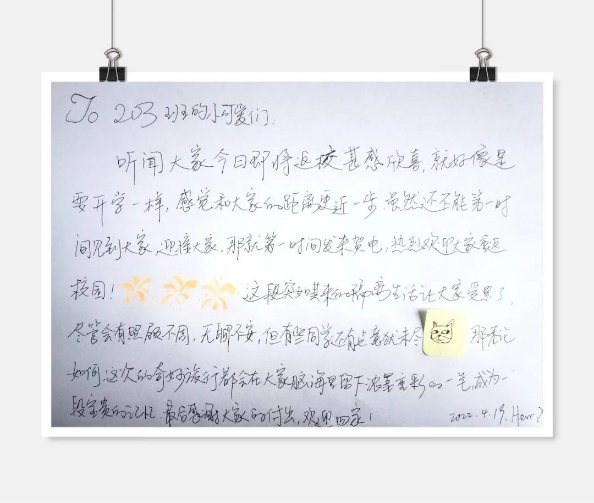 To 203班的小可爱们.
听闻大家今日即将返校甚感欣喜,就好像是
要开学一样,感觉和大家的距离更近一步.虽然还不能第一时
间见到大家,迎接大家,那就第一时间发来贺电,热烈欢迎大家重返
校园! 这段突如其来的隔离生活让大家受累了,
尽管会有照顾不周,无聊不安,但有些同学还有点意犹未尽 那无论
如何,这次的奇妙旅行都会在大家脑海里留下浓墨重彩的一笔,成为一
段宝贵的记忆.最后感谢大家的付出,欢迎回家!
2022.4.19.